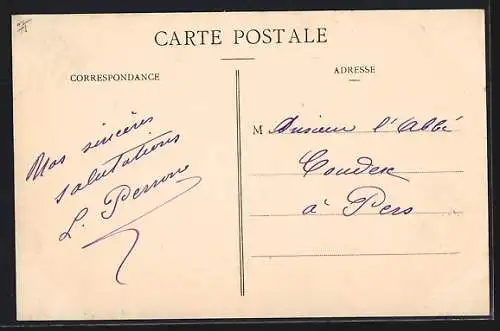 CARTE POSTALE
CORRESPONDANCE
ADRESSE
Mes sincères
salutations
L. Perrone
Monsieur l'Abbé
Coudex
à Pers